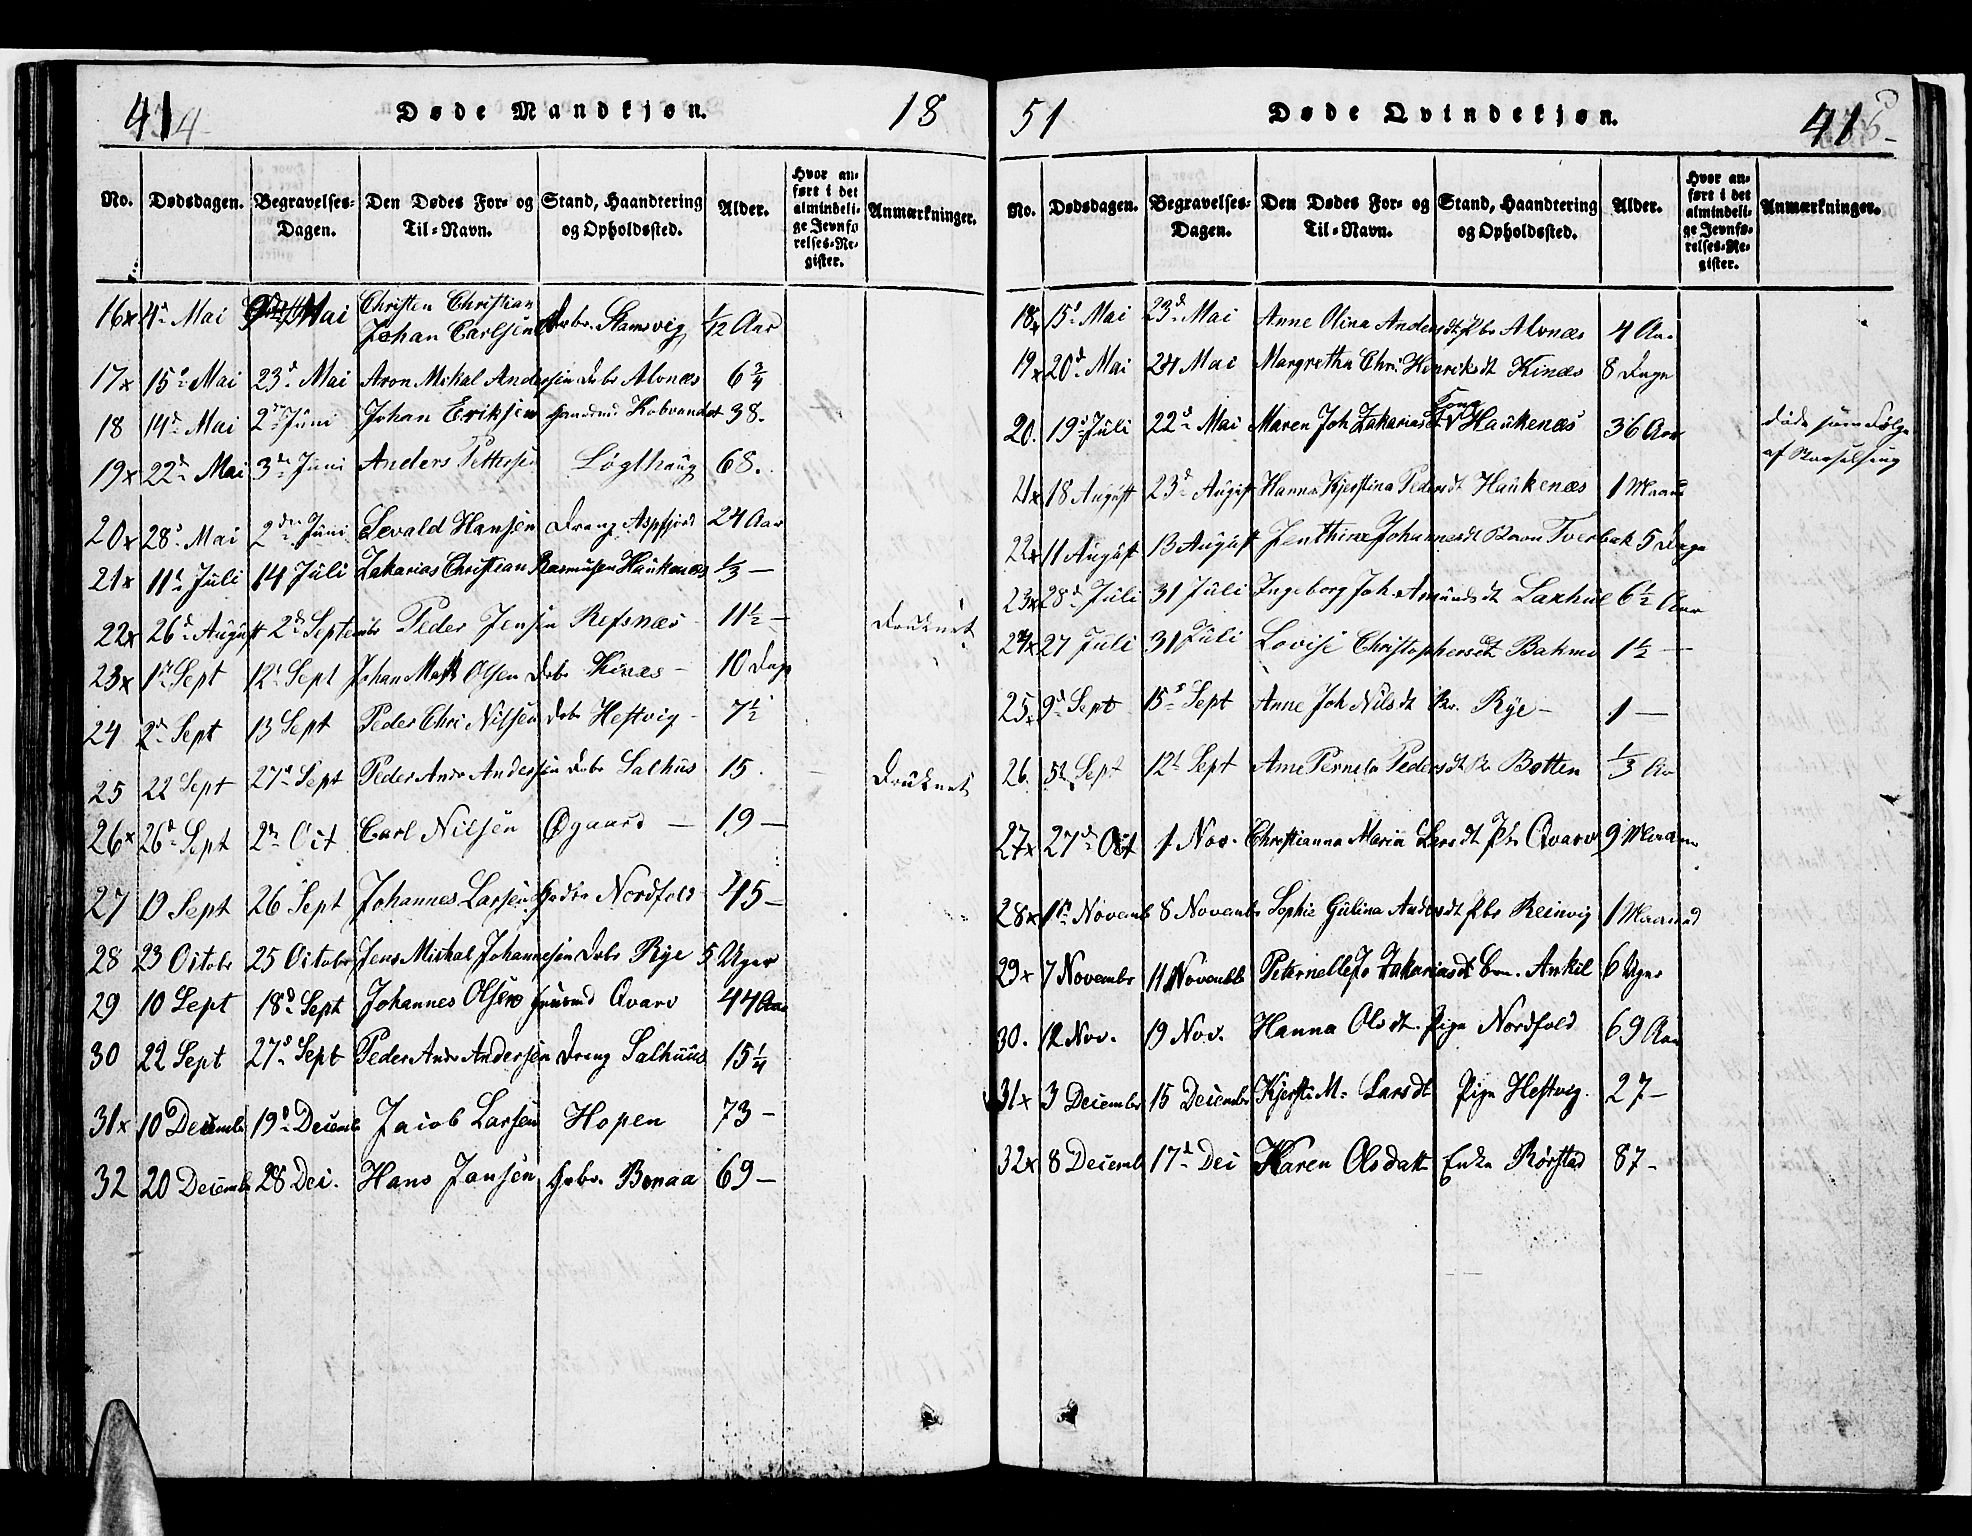 414 Døde Mandkjøn. 18
No. Dødsdagen. Begravelses-Dagen. Den Dødes For- og Til-Navn. Stand, Haandtering og Opholdssted. Alder. Hvor anført i det almindelige Jevnførelses-Register. Anmærkninger.
16x 4d Mai Mai Christen Christian
Johan Carlsen Stamsvig 1/12 Aar
17x 15d Mai 23d Mai Aron Mikal Andersen Drbr Alvnæs 6 3/4
18 14d Mai 2den Juni Johan Eriksen Kobvandet 38.
19x 22d Mai 3die Juni Anders Pettersen Løgthaug 68.
20x 28d Mai 2den Juni Sevald Hansen Dreng Aspfjord 24 Aar
21x 11t Juli 14 Juli Zakarias Christian Rasmusen Haukenæs 1/3 —
22x 26d August 2d Septembr Peder Jensen Refsnæs 11 1/2 — Druknet
23x 1st Sept 12t Sept Johan Math Olsen Drbr Kinæs — 10 Dage
24 2d Sept 13 Sept Peder Chri Nilsen Drbr Hestvig — 7 1/2
25 22 Sept 27d Sept Peder Andr Andersen Drbr Salhus 15. Druknet
26x 26d Sept 2d Oct Carl Nilsen Øgaard — 19 —
27 19 Sept 26 Sept Johannes Larsen Nordfold 45 —
28 23 Octobr 25 Octobr Jens Mickal Johannesen Drbr Rye 5 Uger
29 10 Sept 18d Sept Johannes Olsen Qvarv 44 Aar
30 22 Sept 27d Sept Peder Andr Andersen Dreng Salhuus 15 1/4
31x 10 Decembr 19d Decembr Jacob Larsen Hopen 73 —
32 20 Decembr 28 Dec. Hans Jansen Bonaa 69 —
51 Døde Qvindekjøn. 415
No. Dødsdagen. Begravelses-Dagen. Den Dødes For- og Til-Navn. Stand, Haandtering og Opholdssted. Alder. Hvor anført i det almindelige Jevnførelses-Register. Anmærkninger.
18x 15d Mai 23d Mai Anne Olina Andersdt Pbr Alvnæs 4 Aar
19x 20d Mai 24 Mai Margretha Chri. Henriksdt Kinæs 8 Dage
20. 19d Juli 22d Mai Maren Joh Zakariasdt Kone Haukenæs 36 Aar døde som Følge
af Barselseng
21x 18 August 23d August Hanna Kjerstina Pedersdt Haukenæs 1 Maaned
22x 11 August 13 August Jenthine Johannesdt Barn Tverbak 5 Dage
23x 28d Juli 31 Juli Ingeborg Joh Amundsdt Laxhul 6 1/2 Aar
24x 27 Juli 31 Juli Lovise Christophersdt Bahmo 1 1/2 —
25x 9d Sept 15d Sept Anne Joh Nilsdt Rye — 1 —
26. 5t Sept 12t Sept Ane Pernela Pedersdt Botten 1/3 Ar
27x 27d Oct 1 Nov. Christianna Maria Larsdt Pbr Qvarv 9 Maaner
28x 1st Novemb 8 Novembr Sophie Gulina Andersdt Pbr Reinvig 1 Maaned
29x 7 Novembr 11 Novembr Peternelle Jo Zakariasdt Ankil 6 Uger
30. 12 Nov. 19 Nov. Hanna Olsdt. Pige Nordfold 69 Aar
31x 3 Decembr 15 Decembr Kjersti M: Larsdt Pige Hestvig. 27 —
32x 8 Decemb 17d Dec Karen Olsdatter Enke Rørstad 87 —